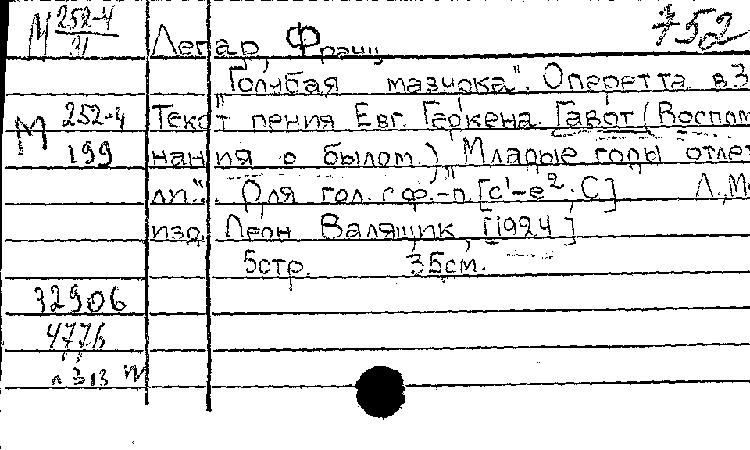 М 252-4/31
752
Легар, Франц
"Голубая мазурка". Оперетта в 3
М 252-4/199
Текст пения Евг. Геркена. Гавот (Воспом
нания о былом.) "Младые годы отлет
ли". Для гол. с ф.-п. [c¹-e²; C] Л., М
изд. Леон Валящик, [1924]
5стр. 35см.
32906
4776